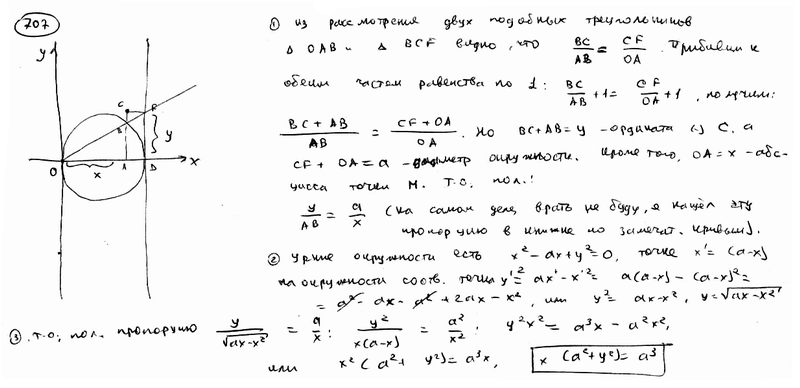 707
y
C
F
B
y
O
x
A
D
x
① из рассмотрения двух подобных треугольников
Δ OAB и Δ BCF видно, что BC/AB = CF/OA. Прибавим к
обеим частям равенства по 1: BC/AB + 1 = CF/OA + 1, получим:
(BC + AB)/AB = (CF + OA)/OA. Но BC+AB = y - ордината (·) C, а
CF + OA = a - диаметр окружности. Кроме того, OA = x - абс-
цисса точки M. Т.О. пол.:
y/AB = a/x (на самом деле, врать не буду, я нашёл эту
пропорцию в книжке по замечат. кривым).
② Ур-ние окружности есть x² - ax + y² = 0, точке x' = (a-x)
на окружности соотв. точка y'² = ax' - x'² = a(a-x) - (a-x)² =
= a² - ax - a² + 2ax - x², или y² = ax - x², y = √(ax-x²)
③ Т.О. пол. пропорцию y/√(ax-x²) = a/x : y²/(x(a-x)) = a²/x². y²x² = a³x - a²x²,
или x²(a² + y²) = a³x, x(a²+y²) = a³